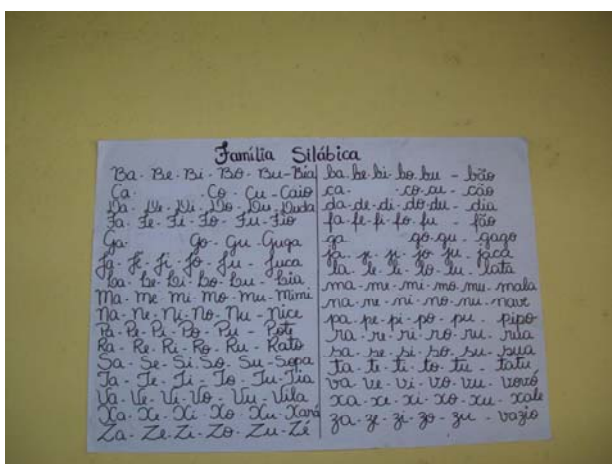 Família Silábica
Ba - Be - Bi - Bo - Bu - Bia
Ca - Co - Cu - Caio
Da - De - Di - Do - Du - Duda
Fa - Fe - Fi - Fo - Fu - Fio
Ga - Go - Gu - Guga
Ja - Je - Ji - Jo - Ju - Juca
La - Le - Li - Lo - Lu - Lia
Ma - me mi - mo - mu - Mimi
Na - ne - Ni - No - Nu - Nice
Pa - Pe - Pi - Po - Pu - Poti
Ra - Re - Ri - Ro - Ru - Rato
Sa - Se - Si - So - Su - Sopa
Ta - Te - Ti - To - Tu - Tia
Va - Ve - Vi - Vo - Vu - Vila
Xa - Xe - Xi - Xo - Xu - Xará
Za - Ze - Zi - Zo - Zu - Zé
ba - be - bi - bo - bu - bão
ca - co - cu - cão
da - de - di - do - du - dia
fa - fe - fi - fo - fu - fão
ga go - gu - gago
ja - je - ji - jo - ju - jaca
la - le - li - lo - lu - lata
ma - me - mi - mo - mu - mala
na - ne - ni - no - nu - nave
pa - pe - pi - po - pu - pipo
ra - re - ri - ro - ru - rua
sa - se - si - so - su - sua
ta - te - ti - to - tu - tatu
va - ve - vi - vo - vu - vovó
xa - xe - xi - xo - xu - xale
za - ze - zi - zo - zu - vazio